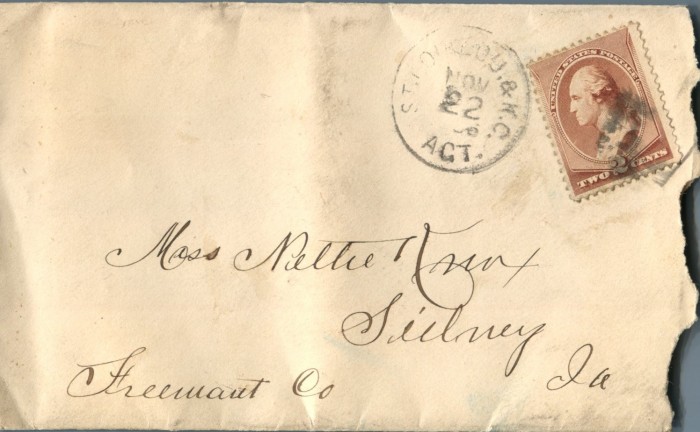 NOV
22
AGT.
UNITED STATES POSTAGE
TWO 2 CENTS
Miss Nellie Knox
Sidney
Freemont Co Ia